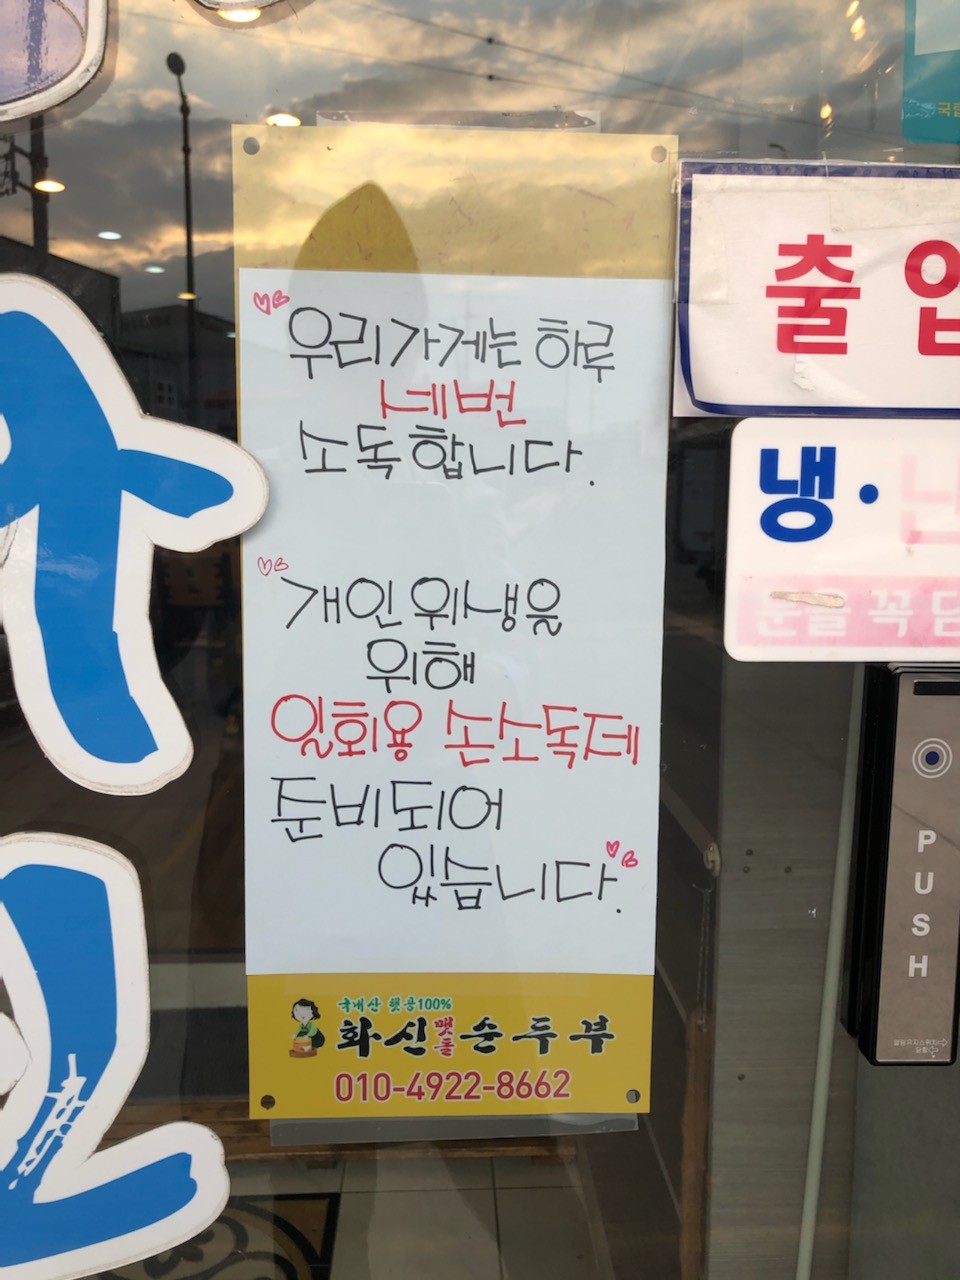 우리가게는 하루
네번
소독합니다.
개인위생을
위해
일회용 손소독제
준비되어
있습니다.
국내산 햇콩100%
화신맷돌순두부
010-4922-8662
출입
냉·난
문을 꼭 닫
PUSH